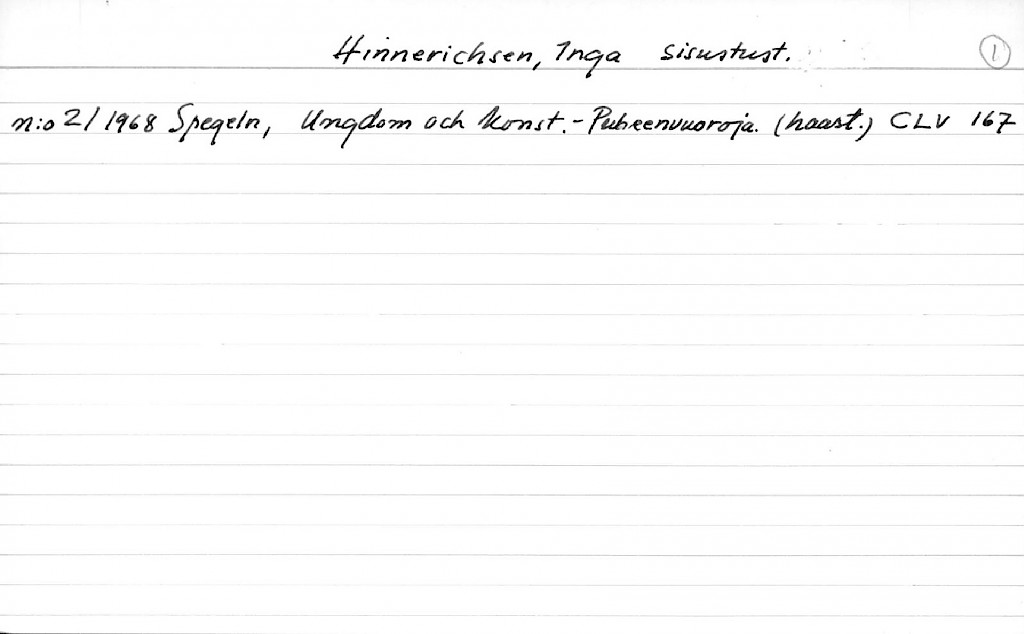 Hinnerichsen, Inga sisustust. 1
n:o 2/1968 Spegeln, Ungdom och konst.- Puheenvuoroja. (haast.) CLV 167